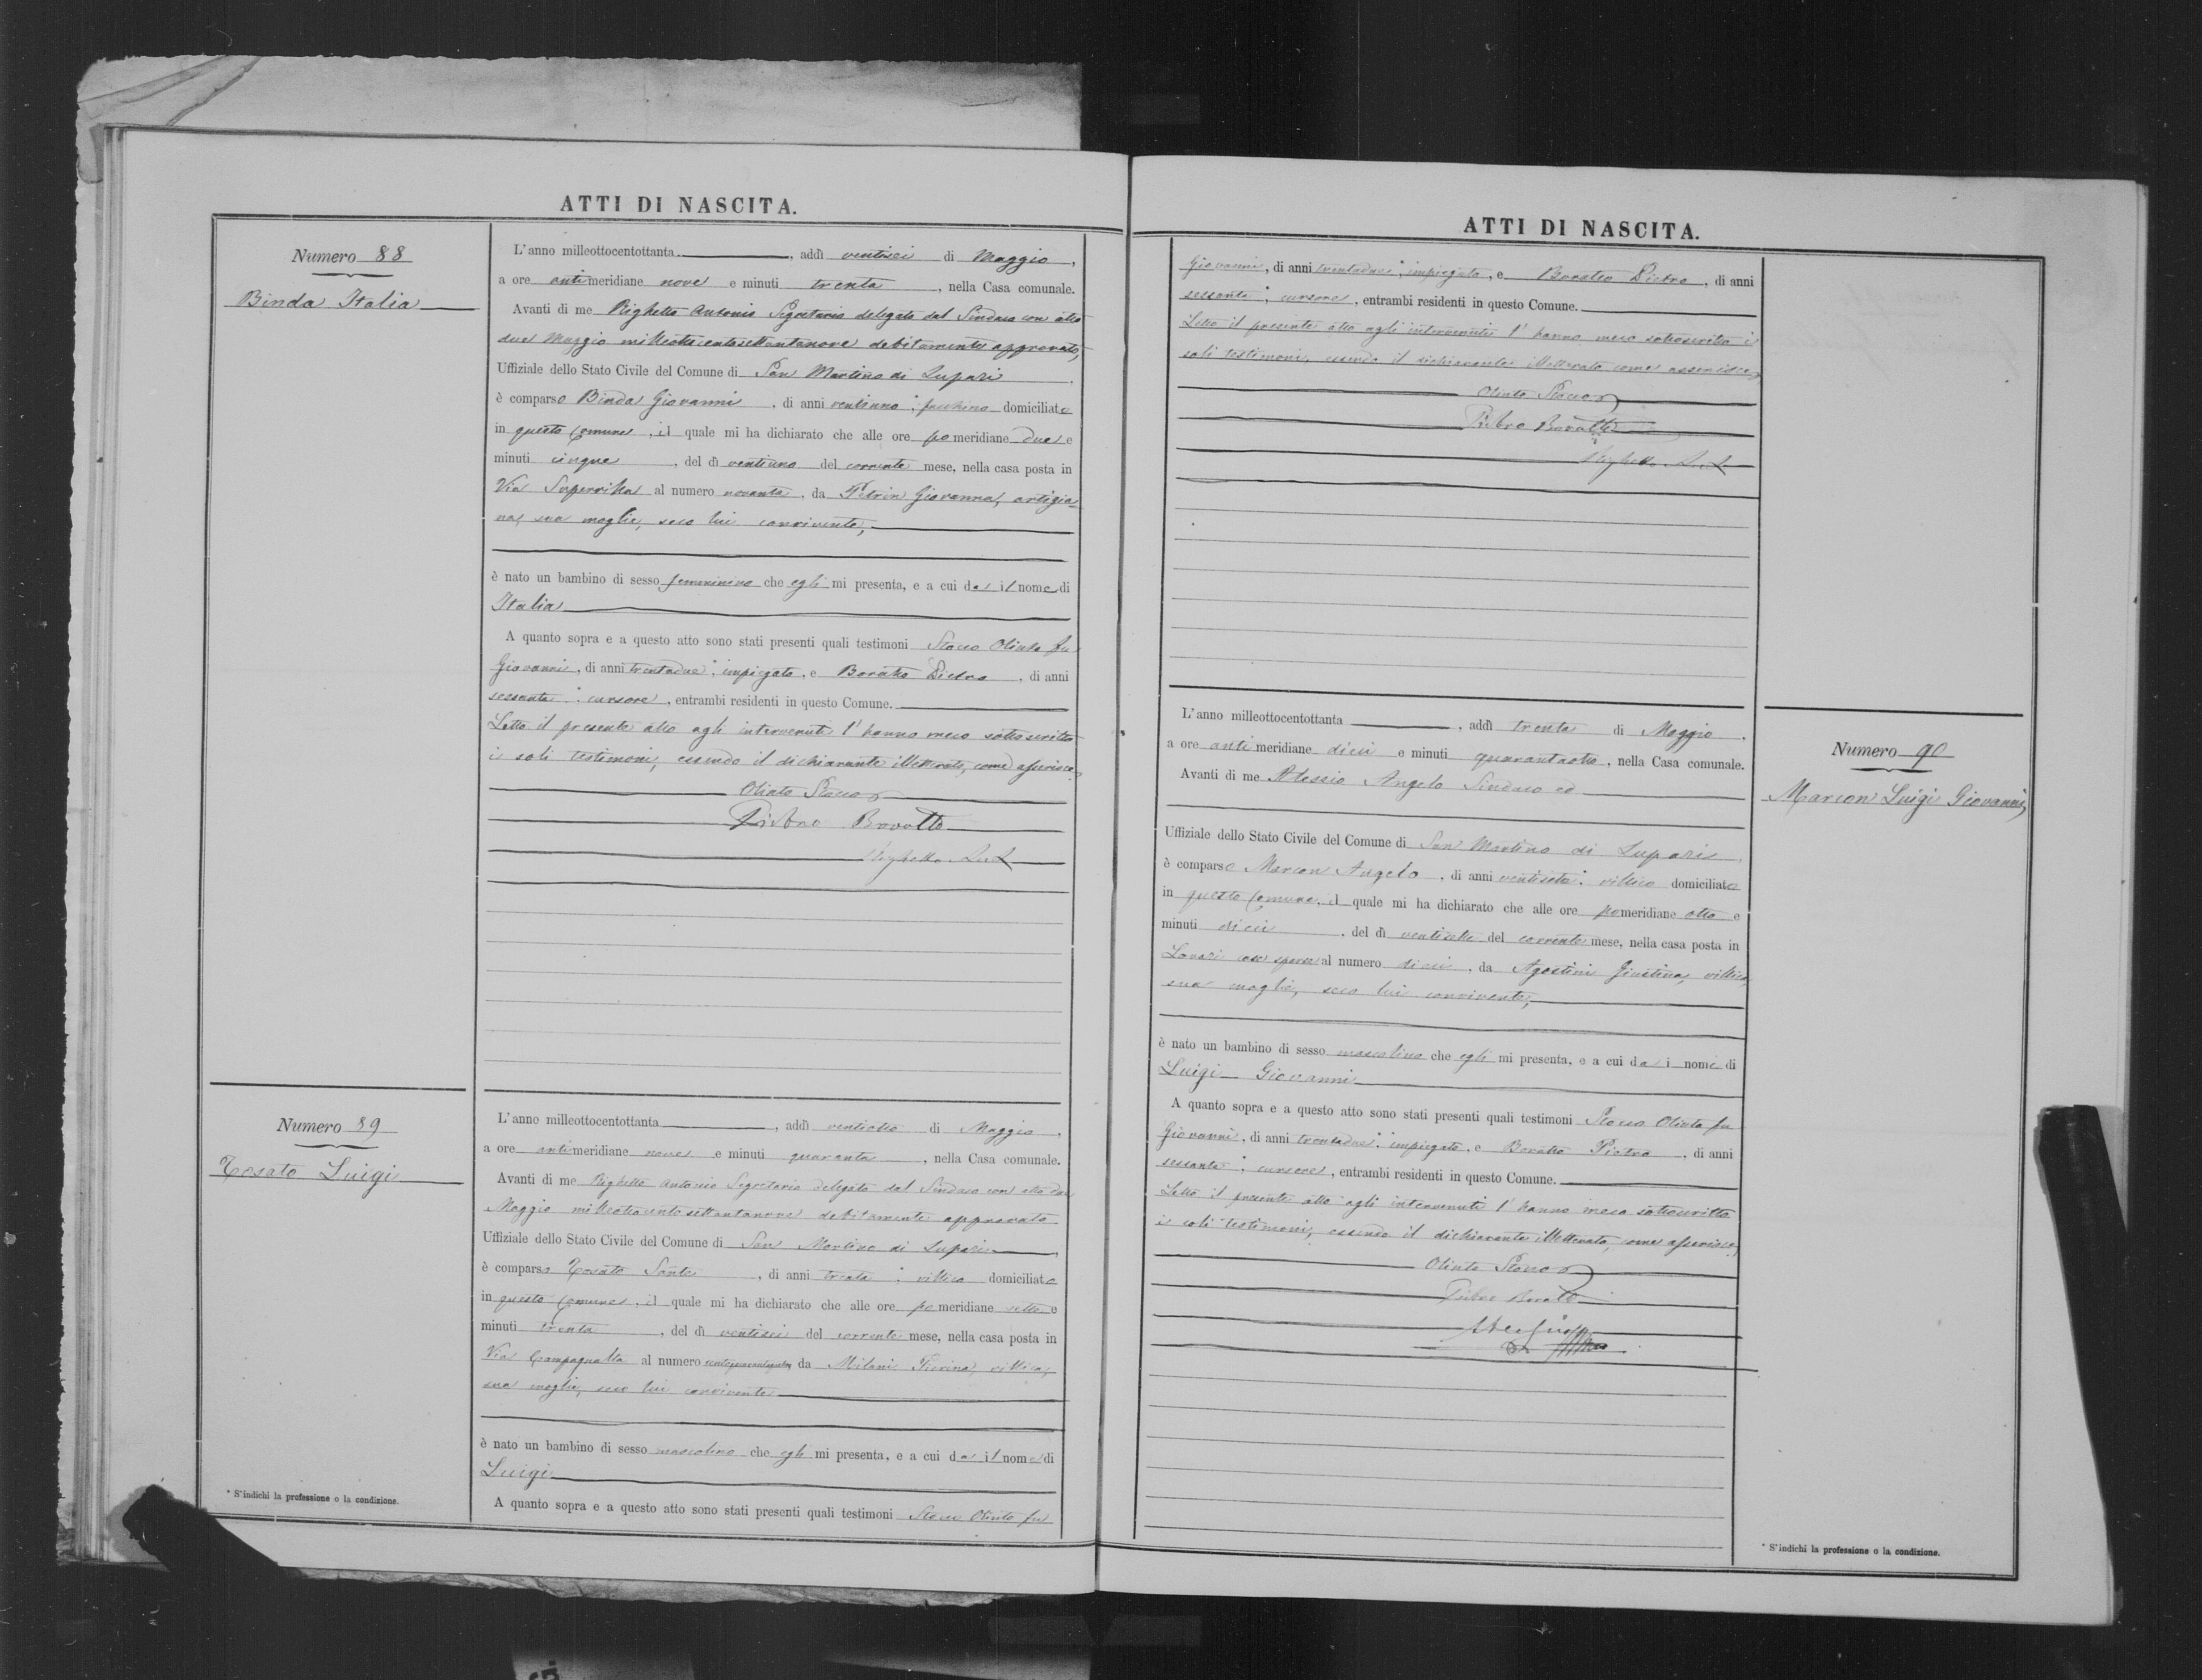 ATTI DI NASCITA.
Numero 88
Binda Italia
L'anno milleottocentottanta, addì ventisei di Maggio,
a ore antimeridiane nove e minuti trenta, nella Casa comunale.
Avanti di me Righetto Antonio Segretario delegato dal Sindaco con atto
due Maggio milleottocentosettantanove debitamente approvato,
Uffiziale dello Stato Civile del Comune di San Martino di Lupari.
è comparso Binda Giovanni, di anni ventinno*, facchino domiciliato
in questo Comune, il quale mi ha dichiarato che alle ore pomeridiane due e
minuti cinque, del dì ventiuno del corrente mese, nella casa posta in
Via Supervilla al numero novanta, da Petrin Giovanna, artigia=
na, sua moglie, seco lui convivente,
è nato un bambino di sesso femminino che egli mi presenta, e a cui da il nome di
Italia
A quanto sopra e a questo atto sono stati presenti quali testimoni Stocco Olinto fu
Giovanni, di anni trentadue*, impiegato, e Boratto Pietro, di anni
sessanta*, cursore, entrambi residenti in questo Comune.
Letto il presente atto agli intervenuti l'hanno meco sottoscritto
i soli testimoni, essendo il dichiarante illetterato, come asserisce,
Olinto Stocco
Pietro Boratto
Righetto Ant
Numero 89
Tosato Luigi
L'anno milleottocentottanta, addì ventiotto di Maggio,
a ore antimeridiane nove e minuti quaranta, nella Casa comunale.
Avanti di me Righetto Antonio Segretario delegato dal Sindaco con atto due
Maggio milleottocentosettantanove debitamente approvato
Uffiziale dello Stato Civile del Comune di San Martino di Lupari,
è comparso Tosato Sante, di anni trenta*, villico domiciliato
in questo Comune, il quale mi ha dichiarato che alle ore pomeridiane sette e
minuti trenta, del dì ventisei del corrente mese, nella casa posta in
Via Campagnalta al numero, da Milani Pierina, villica,
sua moglie, seco lui convivente
è nato un bambino di sesso mascolino che egli mi presenta, e a cui da il nome di
Luigi
A quanto sopra e a questo atto sono stati presenti quali testimoni Stocco Olinto fu
* S'indichi la professione o la condizione.
ATTI DI NASCITA.
Giovanni, di anni trentadue*, impiegato, e Boratto Pietro, di anni
sessanta*, cursore, entrambi residenti in questo Comune.
Letto il presente atto agli intervenuti l'hanno meco sottoscritto i
soli testimoni, essendo il dichiarante illetterato come asserisce,
Olinto Stocco
Pietro Boratto
Righetto Ant
Numero 90
Marcon Luigi Giovanni,
L'anno milleottocentottanta, addì trenta di Maggio,
a ore antimeridiane dieci e minuti quarantaotto, nella Casa comunale.
Avanti di me Alessio Angelo Sindaco ed
Uffiziale dello Stato Civile del Comune di San Martino di Lupari,
è comparso Marcon Angelo, di anni ventisette*, villico domiciliato
in questo Comune, il quale mi ha dichiarato che alle ore pomeridiane otto e
minuti dieci, del dì ventisette del corrente mese, nella casa posta in
Lovari case sparse al numero dieci, da Agostini Giustina, villica,
sua moglie, seco lui convivente,
è nato un bambino di sesso mascolino che egli mi presenta, e a cui da i nomi di
Luigi Giovanni
A quanto sopra e a questo atto sono stati presenti quali testimoni Stocco Olinto fu
Giovanni, di anni trentadue*, impiegato, e Boratto Pietro, di anni
sessanta*, cursore, entrambi residenti in questo Comune.
Letto il presente atto agli intervenuti l'hanno meco sottoscritto
i soli testimoni, essendo il dichiarante illetterato, come asserisce,
Olinto Stocco
Pietro Boratto
* S'indichi la professione o la condizione.